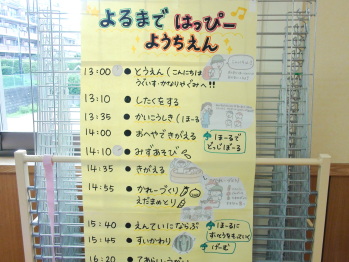 よるまで はっぴー
ようちえん
13:00 ● とうえん (こんにちは
うぐいす・かなりやぐみへ!!
13:10 ● したくをする
13:35 ● かいこうしき (ほーる
14:00 ● おへやできがえる
ほーるで
どっじぼーる
14:10 ● みずあそび
14:35 ● きがえる
14:55 ● かれーづくり
えだまめとり
15:40 ● えんていにならぶ
ほーるに
15:45 ● すいかわり
げーむ
16:20 ● てあらい・うがい